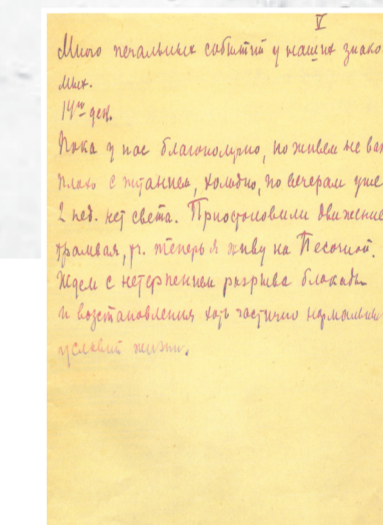 V
Много печальных событий у наших знако
мых.
14го дек.
Пока у нас благополучно, но живем не
плохо с питанием, холодно, по вечерам уже
2 нед. нет света. Приостановили движение
трамвая, теперь я живу на Песочной.
Ждем с нетерпением разрыва блокады
и восстановления хоть частично нормальн
условий жизни.